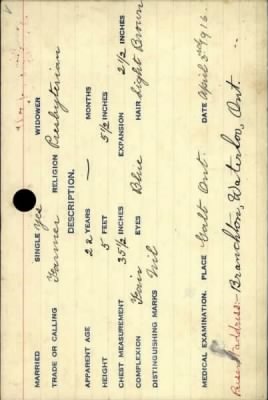 MARRIED SINGLE yes WIDOWER
TRADE OR CALLING Farmer RELIGION Presbyterian
DESCRIPTION.
APPARENT AGE 22 YEARS — MONTHS
HEIGHT 5 FEET 5 1/2 INCHES
CHEST MEASUREMENT 35 1/2 INCHES EXPANSION 2 1/2 INCHES
COMPLEXION Fair EYES Blue HAIR Light Brown
DISTINGUISHING MARKS Nil
MEDICAL EXAMINATION. PLACE Galt Ont. DATE April 3rd 1916
address:- Branchton, Waterloo, Ont.